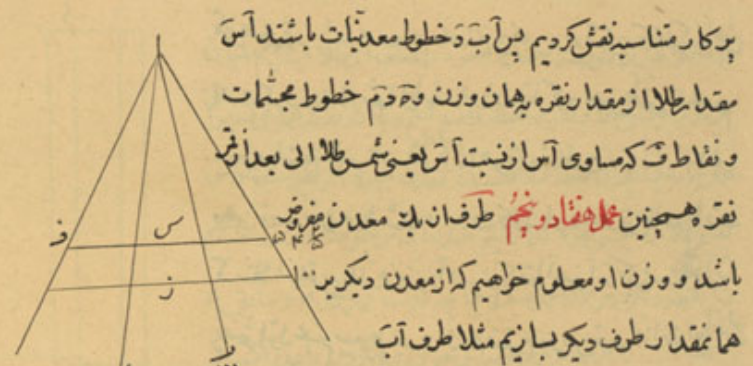 پرکار متناسبه نقش کردیم پس آب دَ خطوط معدنیات باشند آس
مقدار طلا از مقدار نقره به همان وزن و دم خطوط مجسمات
و نقاط ف که مساوی آس از نسبت آس یعنی شمس طلا الی بعد از قمر
نقره همچنین عمل هفتاد و پنجم طرف از یک معدن مفروض
باشد و وزن او معلوم خواهیم که از معدن دیکر بر
همانمقدار طرف دیکر بسازیم مثلا طرف آب
س
ز